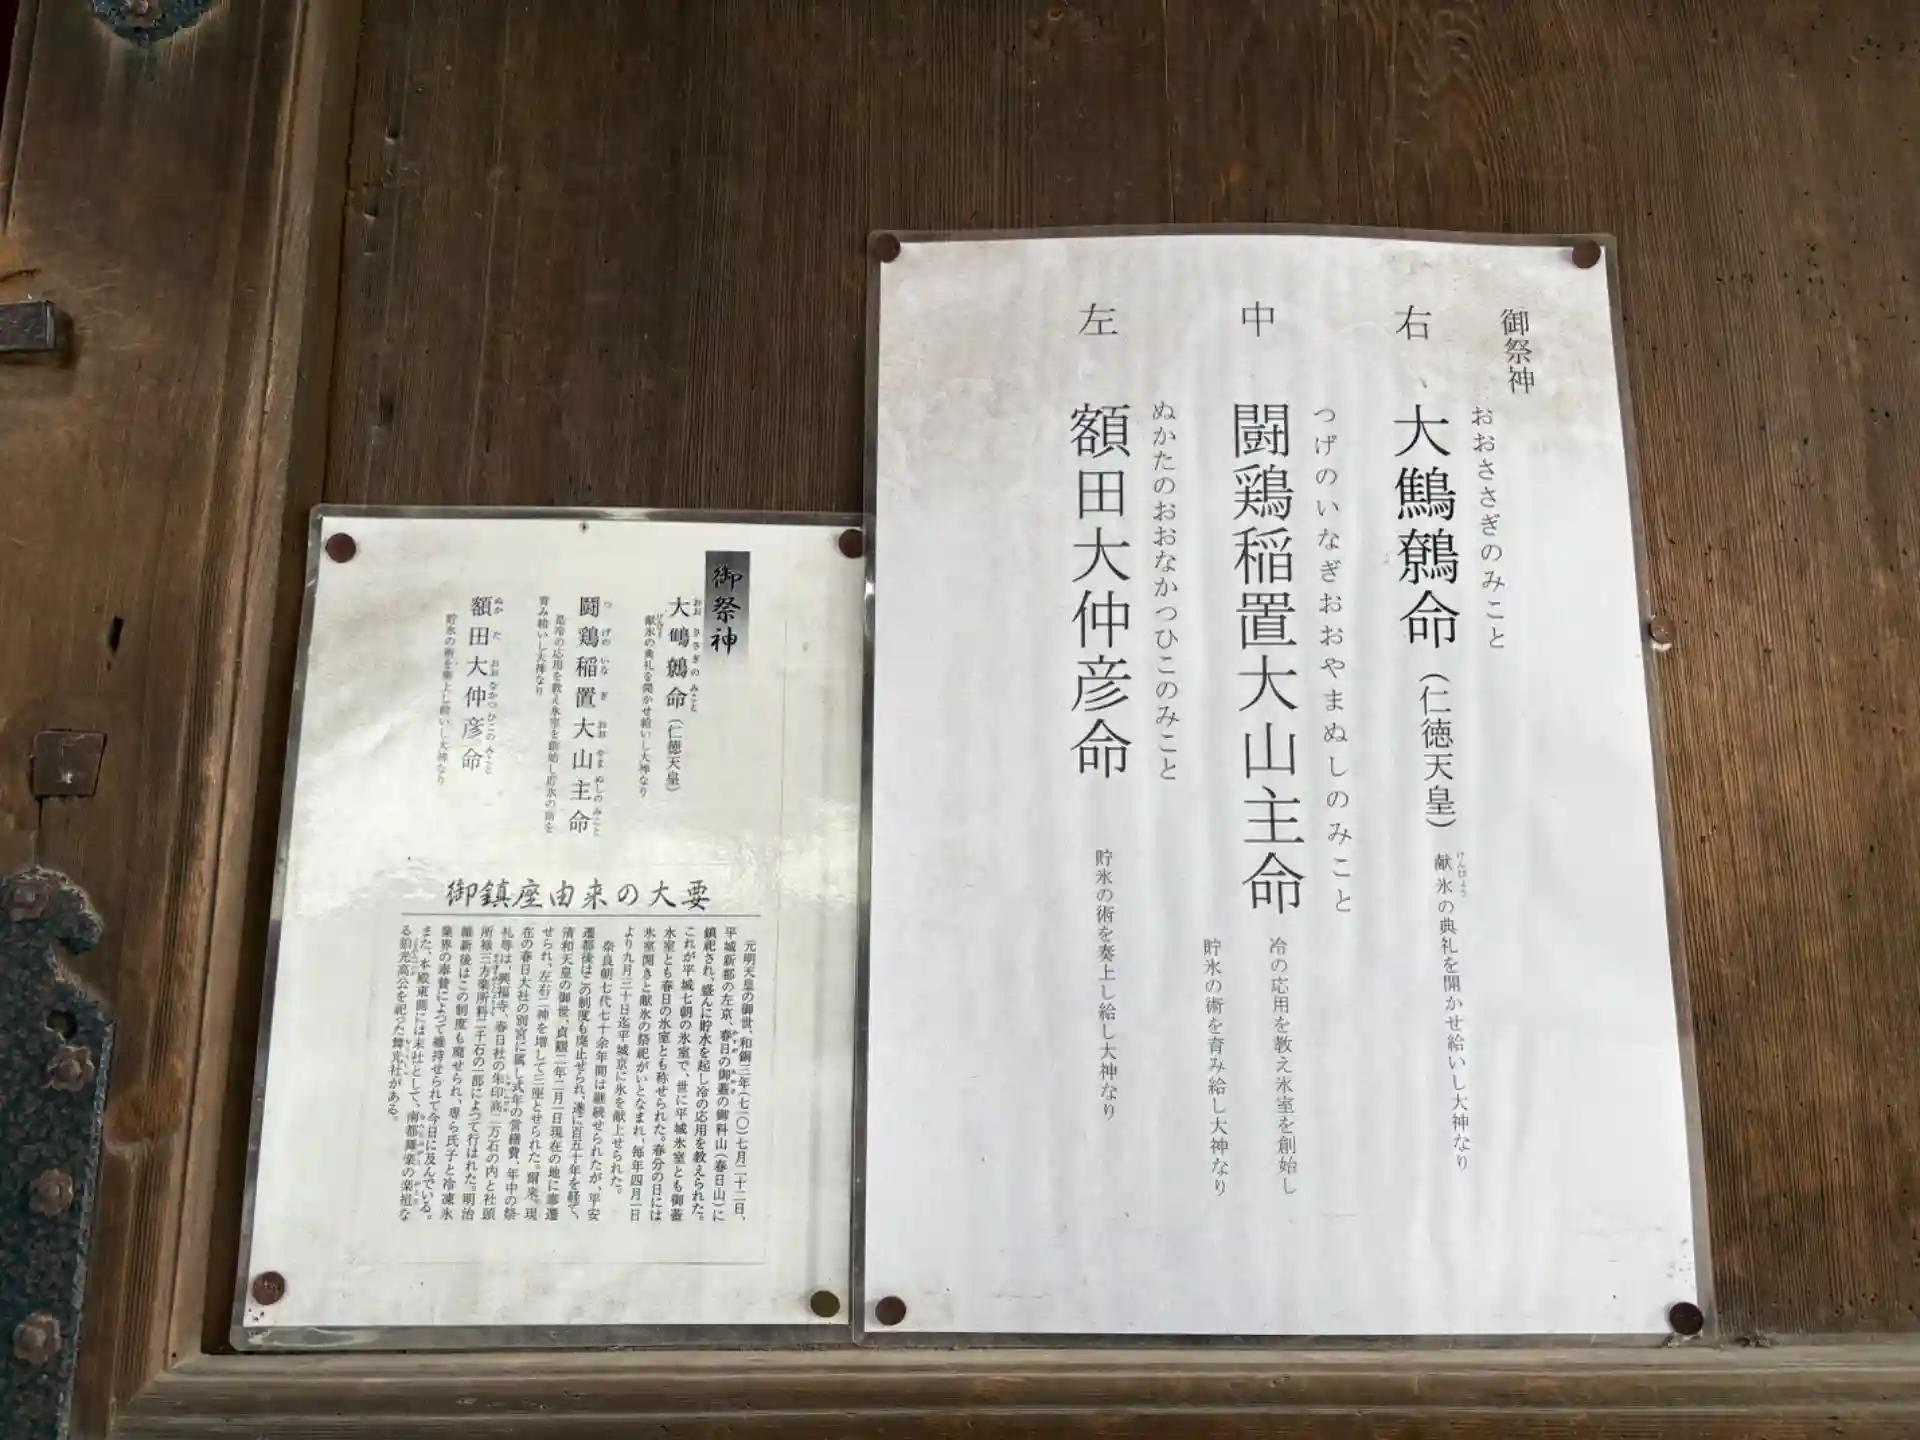 御祭神
おおささぎのみこと
右 大鷦鷯命(仁徳天皇)
けんぴょう
献氷の典礼を開かせ給いし大神なり
つげのいなぎおおやまぬしのみこと
中 闘鶏稲置大山主命
冷の応用を教え氷室を創始し
貯氷の術を育み給し大神なり
ぬかたのおおなかつひこのみこと
左 額田大仲彦命
貯氷の術を奏上し給し大神なり
御祭神
おおささぎのみこと
大鷦鷯命(仁徳天皇)
献氷の典礼を開かせ給いし大神なり
つげのいなぎおおやまぬしのみこと
闘鶏稲置大山主命
是冷の応用を教え氷室を創始し貯氷の術を
育み給いし大神なり
ぬかたおおなかつひこのみこと
額田大仲彦命
貯氷の術を奏上し給いし大神なり
御鎮座由来の大要
元明天皇の御世、和銅三年(七一〇)七月二十二日、
平城新都の左京、春日の御蓋の御料山(春日山)に
鎮祀され、盛んに貯氷を起し冷の応用を教えられた。
これが平城七朝の氷室で、世に平城氷室とも御蓋
氷室とも春日の氷室とも称せられた。春分の日には
氷室開きと献氷の祭祀がいとなまれ、毎年四月一日
より九月三十日迄平城京に氷を献上せられた。
奈良朝七代七十余年間は継続せられたが、平安
遷都後はこの制度も廃止せられ、遂に百五十年を経て、
清和天皇の御世、貞観二年二月一日現在の地に奉遷
せられ、左右二神を増して三座とせられた。爾来、現
在の春日大社の別宮に属し式年の営繕費、年中の祭
礼等は、興福寺、春日社の朱印高二万石の内と社頭
所禄三方楽所料二千石の一部によって行はれた。明治
維新後はこの制度も廃せられ、専ら氏子と冷凍氷
業界の奉賛によって維持せられて今日に及んでいる。
また、本殿東側には末社として、南都舞楽の楽祖な
る狛光高公を祀った舞光社がある。